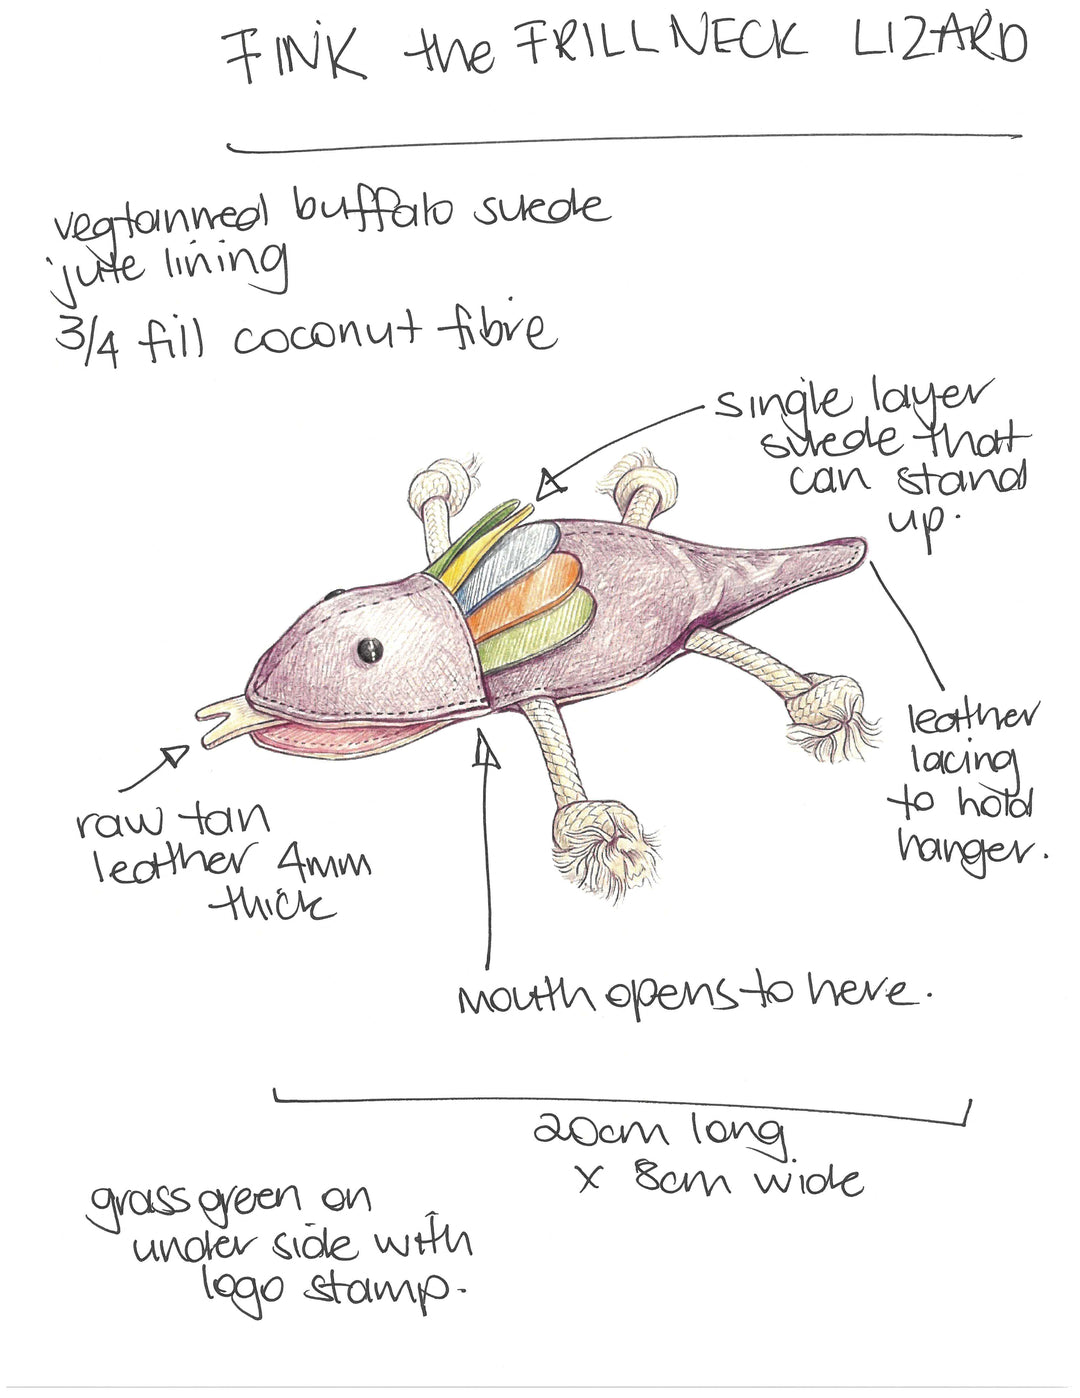 FINK the FRILLNECK LIZARD
vegtanned buffalo suede
jute lining
3/4 fill coconut fibre
single layer
suede that
can stand
up.
leather
lacing
to hold
hanger.
raw tan
leather 4mm
thick
mouth opens to here.
20cm long
x 8cm wide
grass green on
under side with
logo stamp.